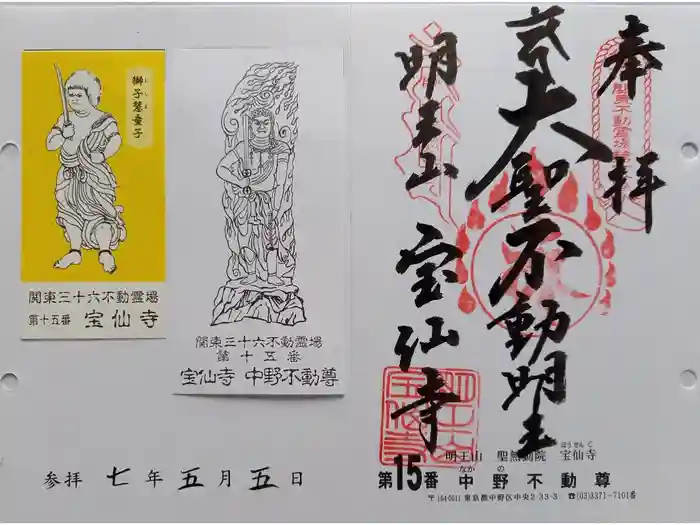 獅子慧童子
関東三十六不動霊場
第十五番 宝仙寺
関東三十六不動霊場
第十五番
宝仙寺 中野不動尊
参拝 七年五月五日
奉拝
大聖不動明王
明王山 宝仙寺
明王山 聖無動院 宝仙寺
ほうせんじ
第15番 中野不動尊
なかの
〒164-0011 東京都中野区中央2-33-3 ☎(03)3371-7101番